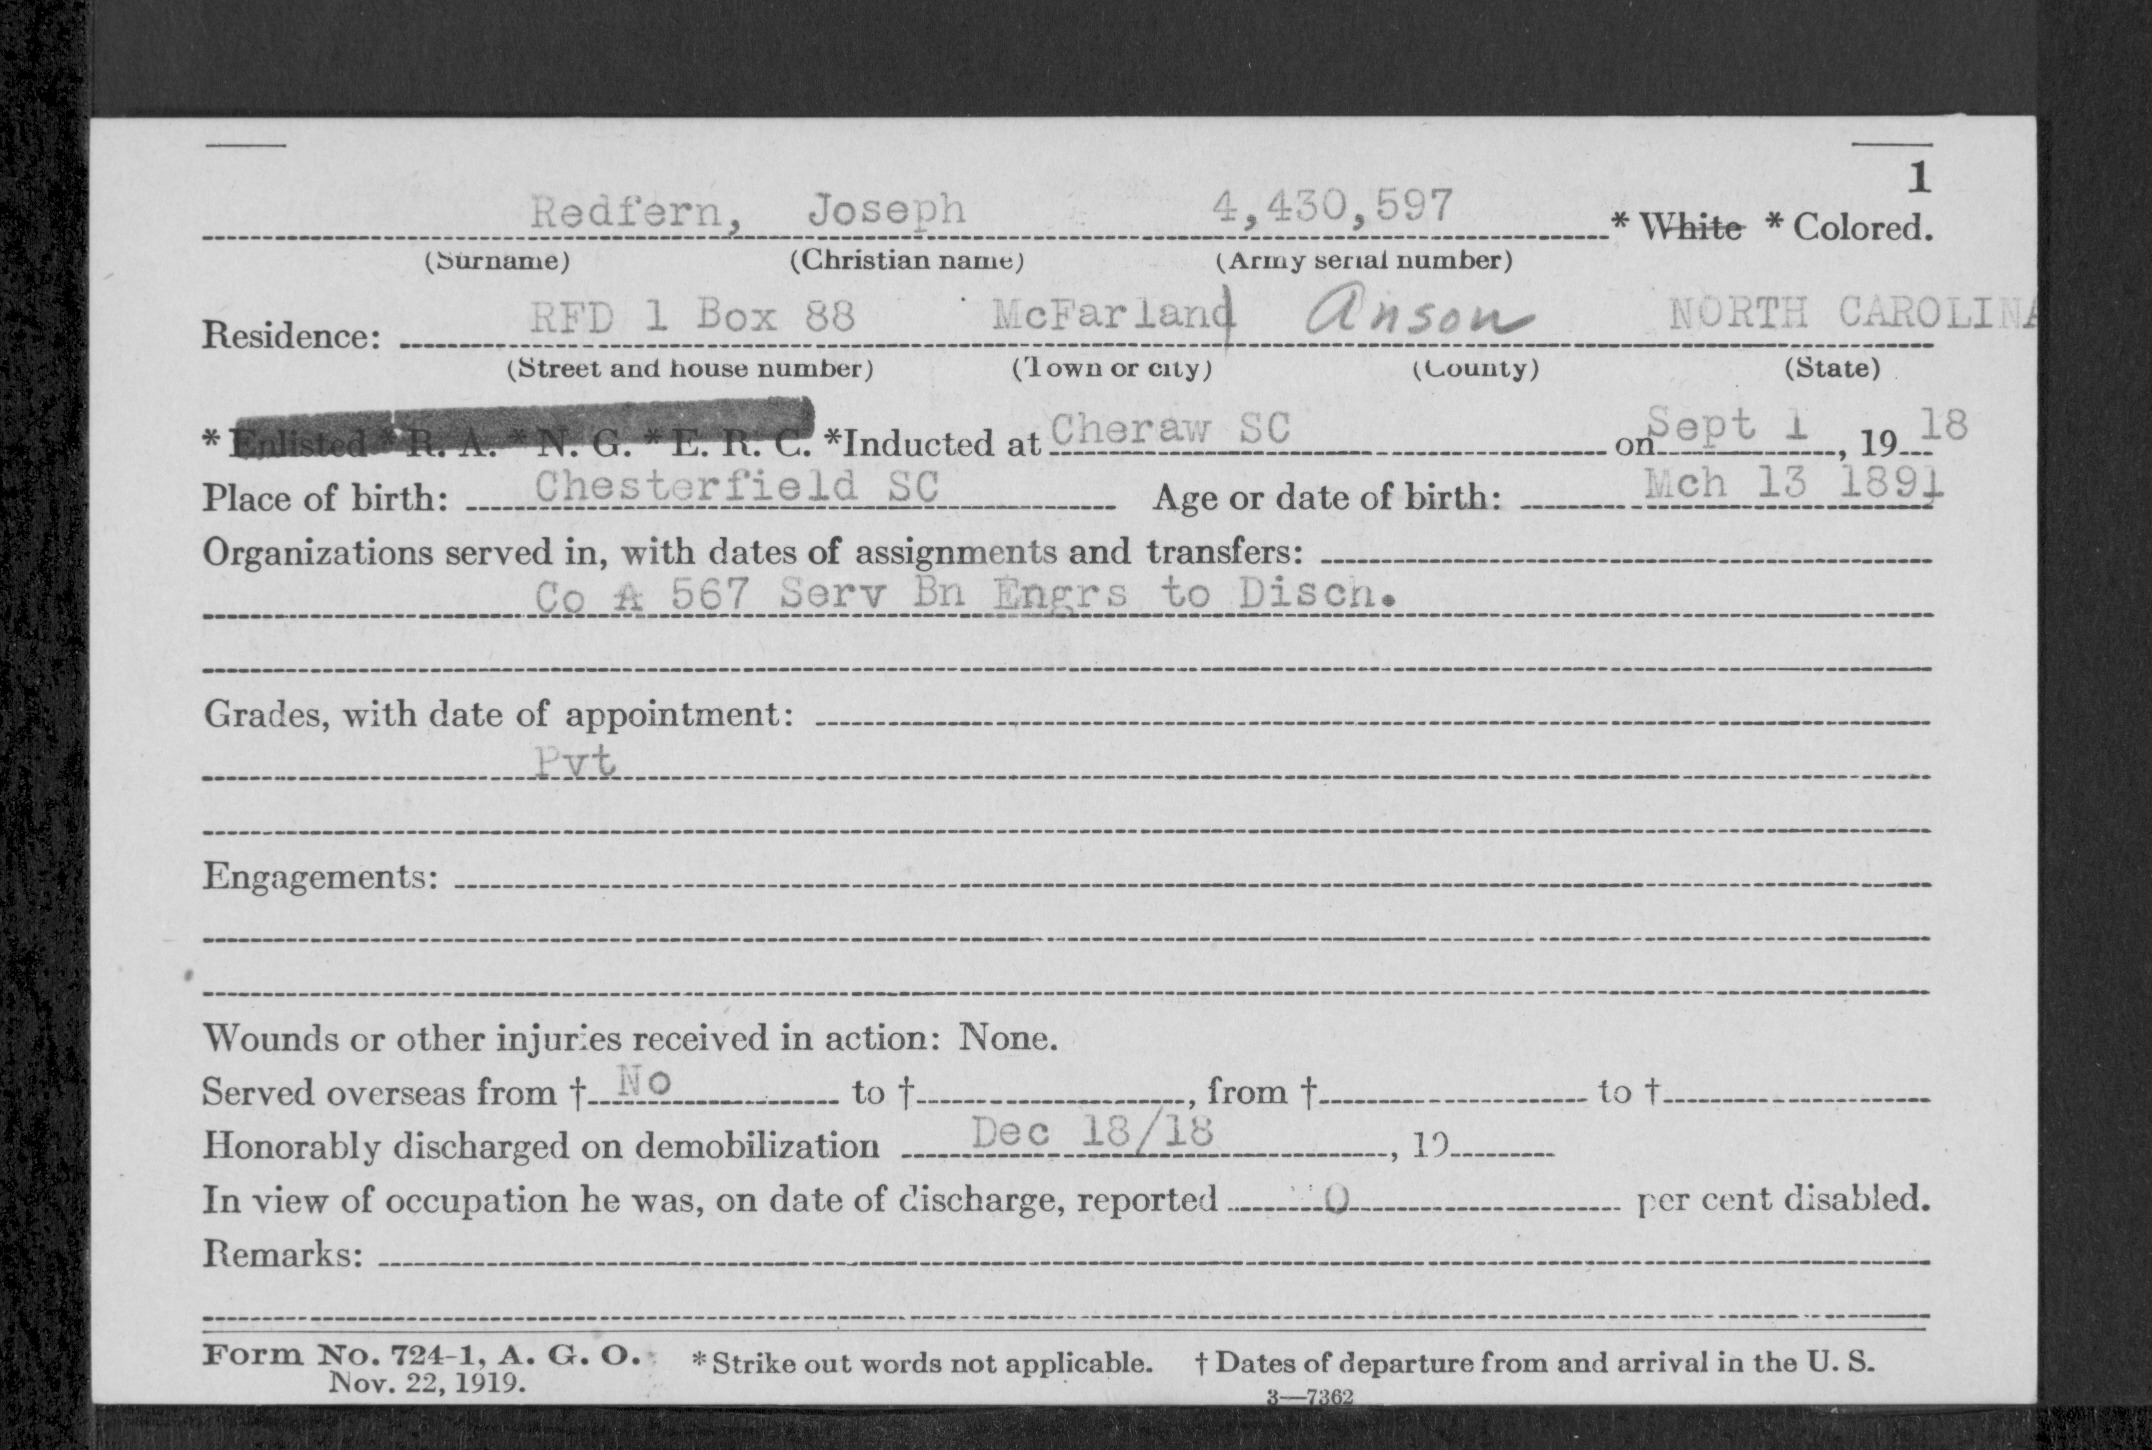 1
Redfern, Joseph 4,430,597 * White * Colored.
(Surname) (Christian name) (Army serial number)
Residence: RFD 1 Box 88 McFarland Anson NORTH CAROLINA
(Street and house number) (Town or city) (County) (State)
* Enlisted * R. A. * N. G. * E. R. C. *Inducted at Cheraw SC on Sept 1, 19 18
Place of birth: Chesterfield SC Age or date of birth: Mch 13 1891
Organizations served in, with dates of assignments and transfers:
Co A 567 Serv Bn Engrs to Disch.
Grades, with date of appointment:
Pvt
Engagements:
Wounds or other injuries received in action: None.
Served overseas from † No to †, from † to †
Honorably discharged on demobilization Dec 18/18, 19
In view of occupation he was, on date of discharge, reported 0 per cent disabled.
Remarks:
Form No. 724-1, A. G. O. * Strike out words not applicable. † Dates of departure from and arrival in the U. S.
Nov. 22, 1919.
3—7362